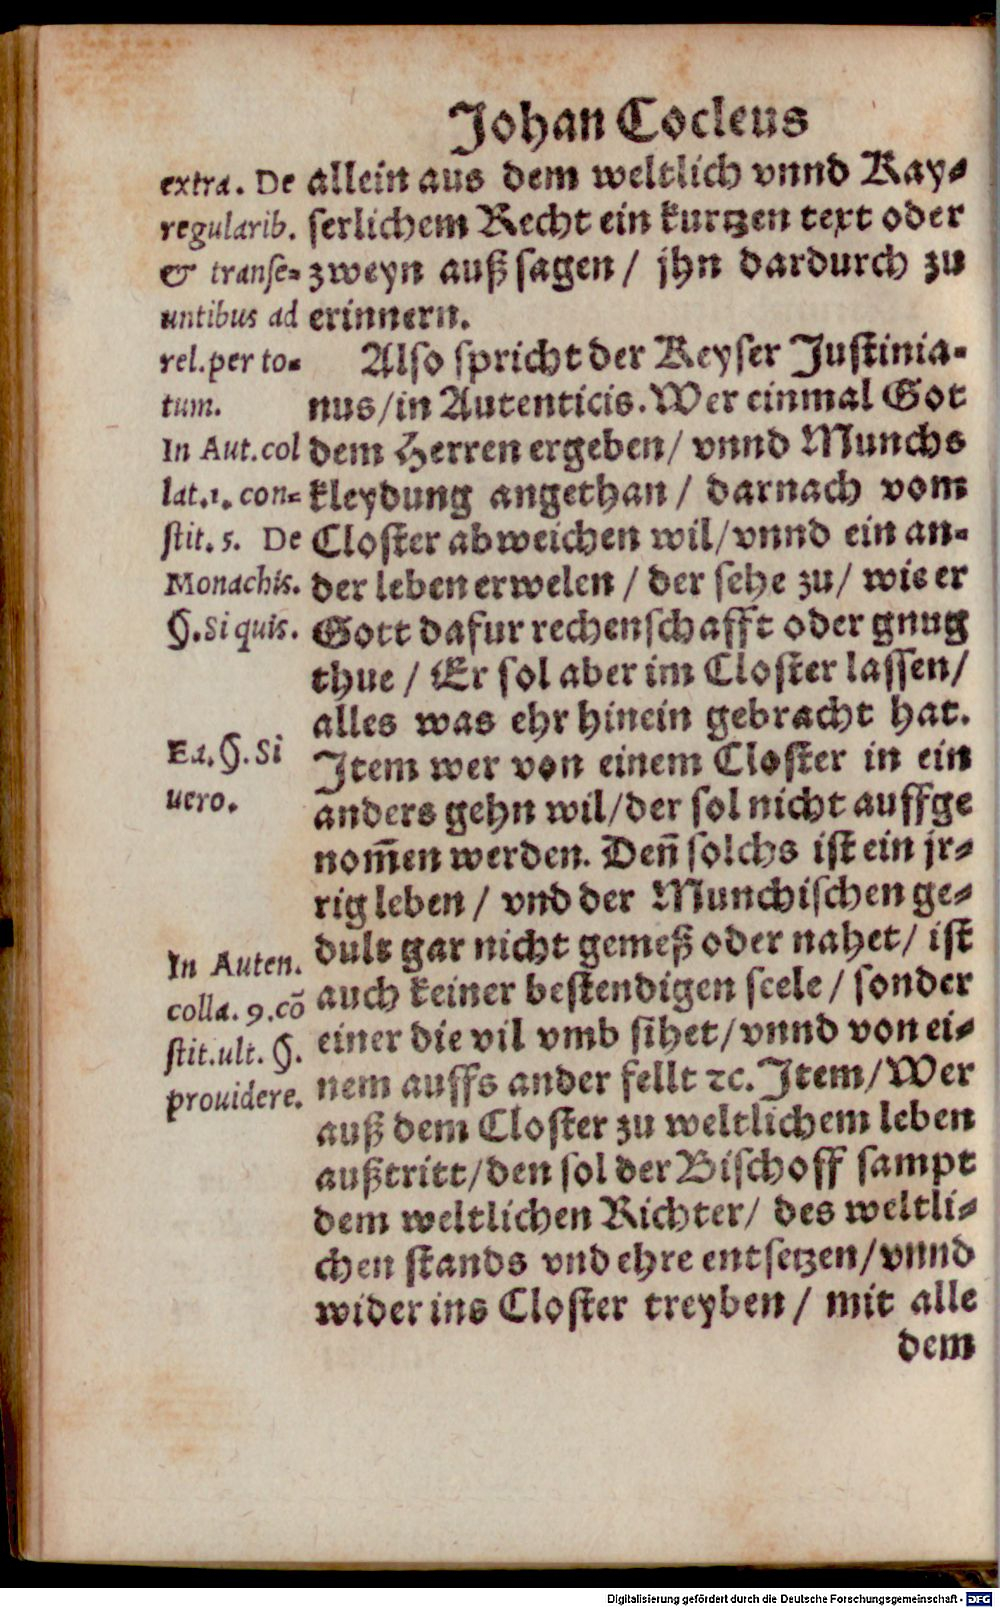 Johan Cocleus
extra. De
regularib.
& transe-
untibus ad
rel. per to-
tum.
In Aut. col
lat. 1. con-
stit. 5. De
Monachis.
§. Si quis.
Ea. §. Si
uero.
In Auten.
colla. 9. cō
stit. ult. §.
prouidere.
allein aus dem weltlich vnnd Kay-
serlichem Recht ein kurtzen text oder
zweyn auß sagen / jhn dardurch zu
erinnern.
Also spricht der Keyser Justinia-
nus / in Autenticis. Wer einmal Got
dem Herren ergeben / vnnd Munchs
kleydung angethan / darnach vom
Closter abweichen wil / vnnd ein an-
der leben erwelen / der sehe zu / wie er
Gott dafur rechenschafft oder gnug
thue / Er sol aber im Closter lassen /
alles was ehr hinein gebracht hat.
Item wer von einem Closter in ein
anders gehn wil / der sol nicht auffge
nom̄en werden. Den̄ solchs ist ein jr-
rig leben / vnd der Munchischen ge-
dult gar nicht gemeß oder nahet / ist
auch keiner bestendigen seele / sonder
einer die vil vmb sihet / vnnd von ei-
nem auffs ander fellt ꝛc. Item / Wer
auß dem Closter zu weltlichem leben
außtritt / den sol der Bischoff sampt
dem weltlichen Richter / des weltli-
chen stands vnd ehre entsetzen / vnnd
wider ins Closter treyben / mit alle
dem
Digitalisierung gefördert durch die Deutsche Forschungsgemeinschaft - DFG